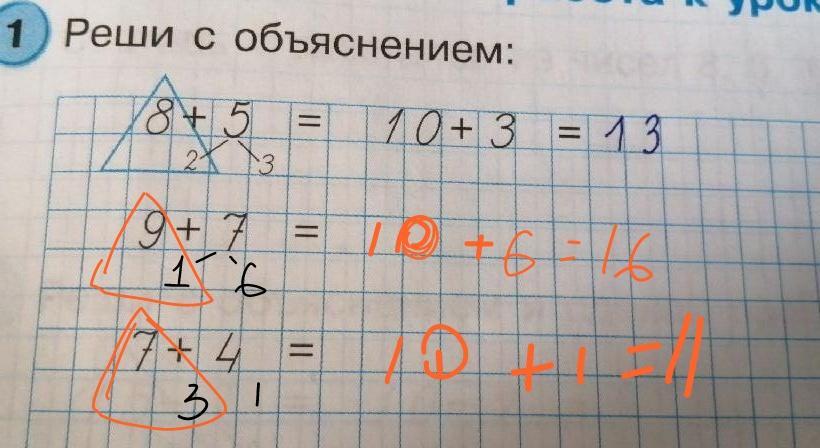 к урок
1 Реши с объяснением:
8 + 5 = 10 + 3 = 13
2 3
9 + 7 = 10 + 6 = 16
1 6
7 + 4 = 10 + 1 = 11
3 1